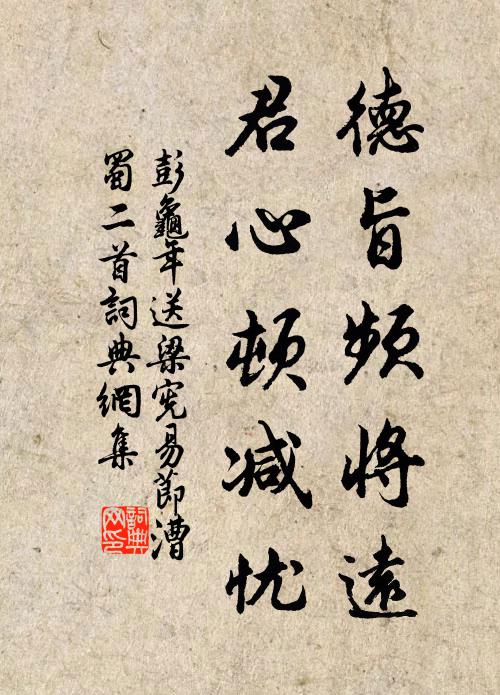 德旨频将遠
君心頓减忧
彭龜年送梁宪易節漕
蜀二首詞典網集
詞典
网印